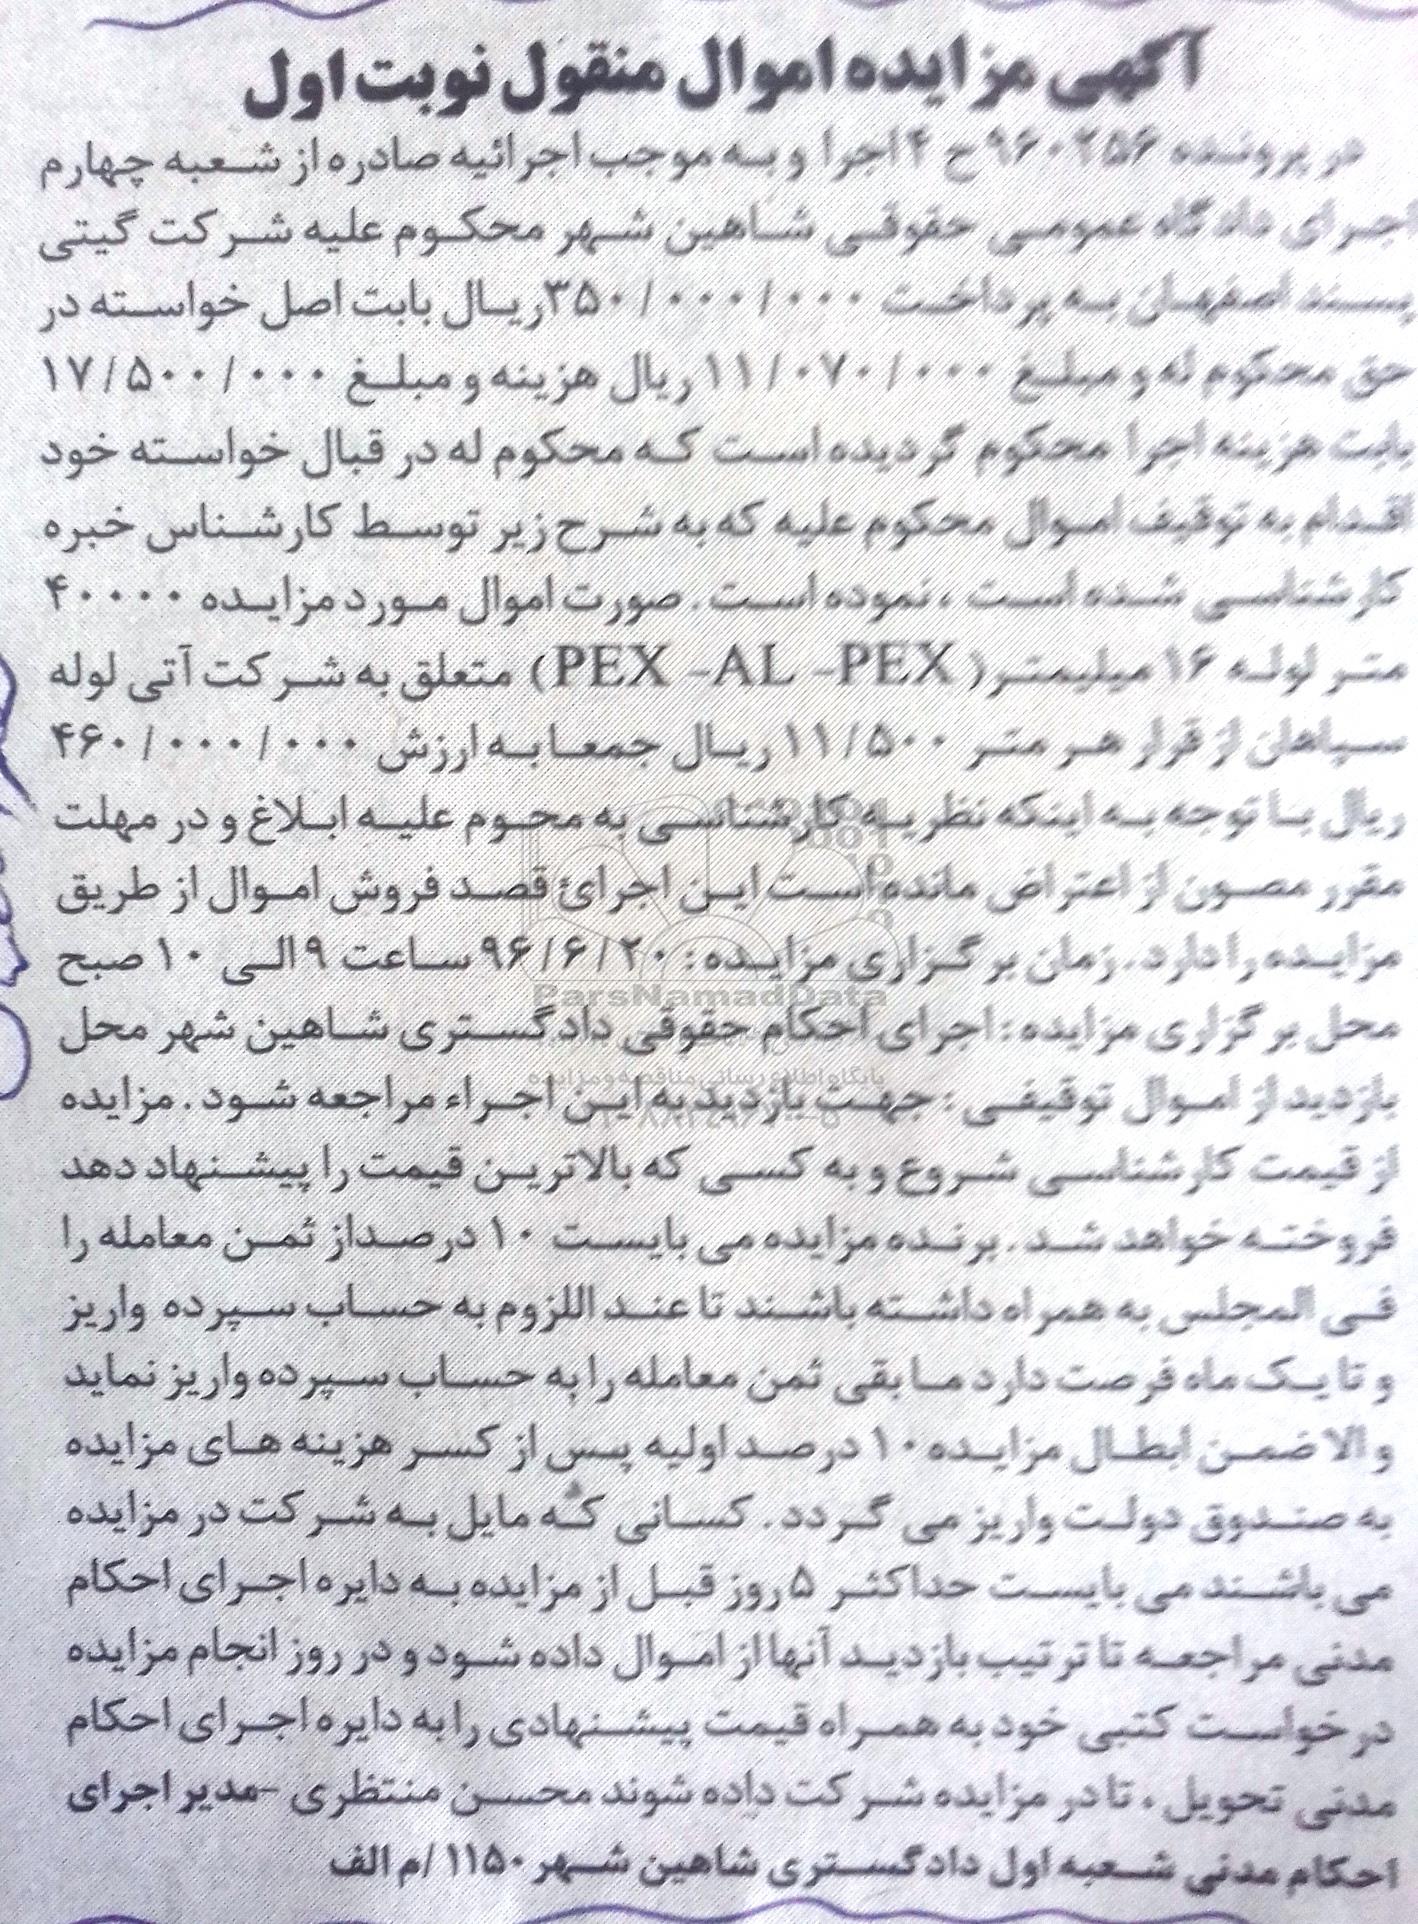 آگهی مزایده اموال منقول نوبت اول
در پرونده ۹۶۰۲۵۶ ح ۴ اجرا و به موجب اجرائیه صادره از شعبه چهارم
اجرای دادگاه عمومی حقوقی شاهین شهر محکوم علیه شرکت گیتی
پسند اصفهان به پرداخت ۳۵۰/۰۰۰/۰۰۰ ریال بابت اصل خواسته در
حق محکوم له و مبلغ ۱۱/۰۷۰/۰۰۰ ریال هزینه و مبلغ ۱۷/۵۰۰/۰۰۰
بابت هزینه اجرا محکوم گردیده است که محکوم له در قبال خواسته خود
اقدام به توقیف اموال محکوم علیه که به شرح زیر توسط کارشناس خبره
کارشناسی شده است ، نموده است. صورت اموال مورد مزایده ۴۰۰۰۰
متر لوله ۱۶ میلیمتر (PEX -AL -PEX) متعلق به شرکت آتی لوله
سپاهان از قرار هر متر ۱۱/۵۰۰ ریال جمعا به ارزش ۴۶۰/۰۰۰/۰۰۰
ریال با توجه به اینکه نظریه کارشناسی به محوم علیه ابلاغ و در مهلت
مقرر مصون از اعتراض مانده است این اجرائ قصد فروش اموال از طریق
مزایده را دارد. زمان برگزاری مزایده: ۹۶/۶/۲۰ ساعت ۹ الی ۱۰ صبح
ParsNamadData
محل برگزاری مزایده: اجرای احکام حقوقی دادگستری شاهین شهر محل
پایگاه اطلاع رسانی مناقصه و مزایده
بازدید از اموال توقیفی : جهت بازدید به این اجراء مراجعه شود. مزایده
از قیمت کارشناسی شروع و به کسی که بالاترین قیمت را پیشنهاد دهد
فروخته خواهد شد. برنده مزایده می بایست ۱۰ درصد از ثمن معامله را
فی المجلس به همراه داشته باشند تا عند اللزوم به حساب سپرده واریز
و تا یک ماه فرصت دارد ما بقی ثمن معامله را به حساب سپرده واریز نماید
و الا ضمن ابطال مزایده ۱۰ درصد اولیه پس از کسر هزینه های مزایده
به صندوق دولت واریز می گردد. کسانی که مایل به شرکت در مزایده
می باشند می بایست حداکثر ۵ روز قبل از مزایده به دایره اجرای احکام
مدنی مراجعه تا ترتیب بازدید آنها از اموال داده شود و در روز انجام مزایده
درخواست کتبی خود به همراه قیمت پیشنهادی را به دایره اجرای احکام
مدنی تحویل ، تا در مزایده شرکت داده شوند محسن منتظری -مدیر اجرای
احکام مدنی شعبه اول دادگستری شاهین شهر ۱۱۵۰/م الف